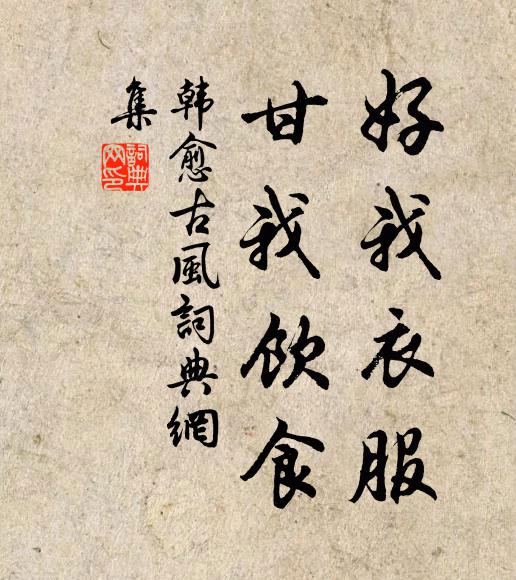 好我衣服
甘我飲食
韩愈古風詞典網
集
詞典
网印